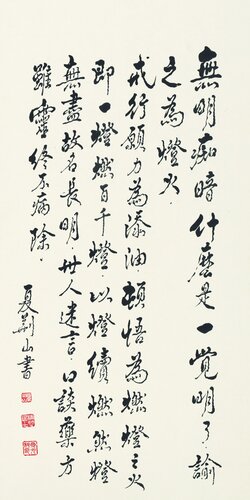 無明痴暗什麼是一覺明了喻
之為燈火
戒行願力為添油頓悟為燃燈之火
即一燈燃百千燈以燈續燃然燈
無盡故名長明世人迷言口談藥方
雖靈終不病除
夏荊山書